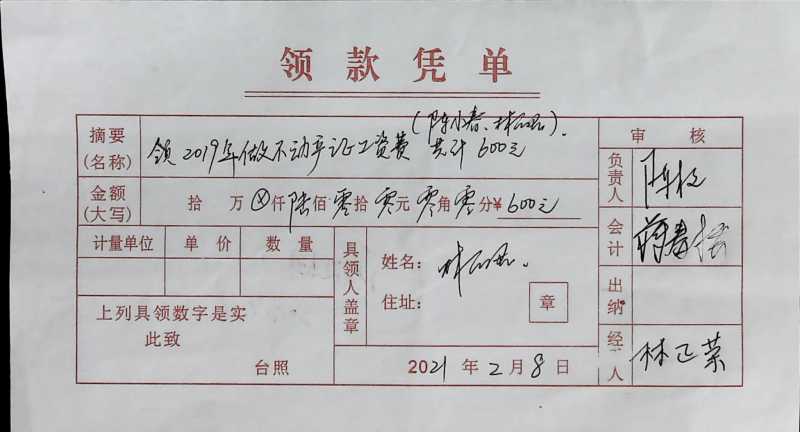 领款凭单
(陈小春、林
摘要(名称) 领2019年做不动产证工资费 共计600元
审核
负责人 陈
金额(大写) 拾万⊗仟陆佰零拾零元零角零分¥600元
会计
计量单位 单价 数量
具领人盖章
姓名: 林
住址: 章
出纳
上列具领数字是实
此致
台照
2021年2月8日
经 人 林正荣